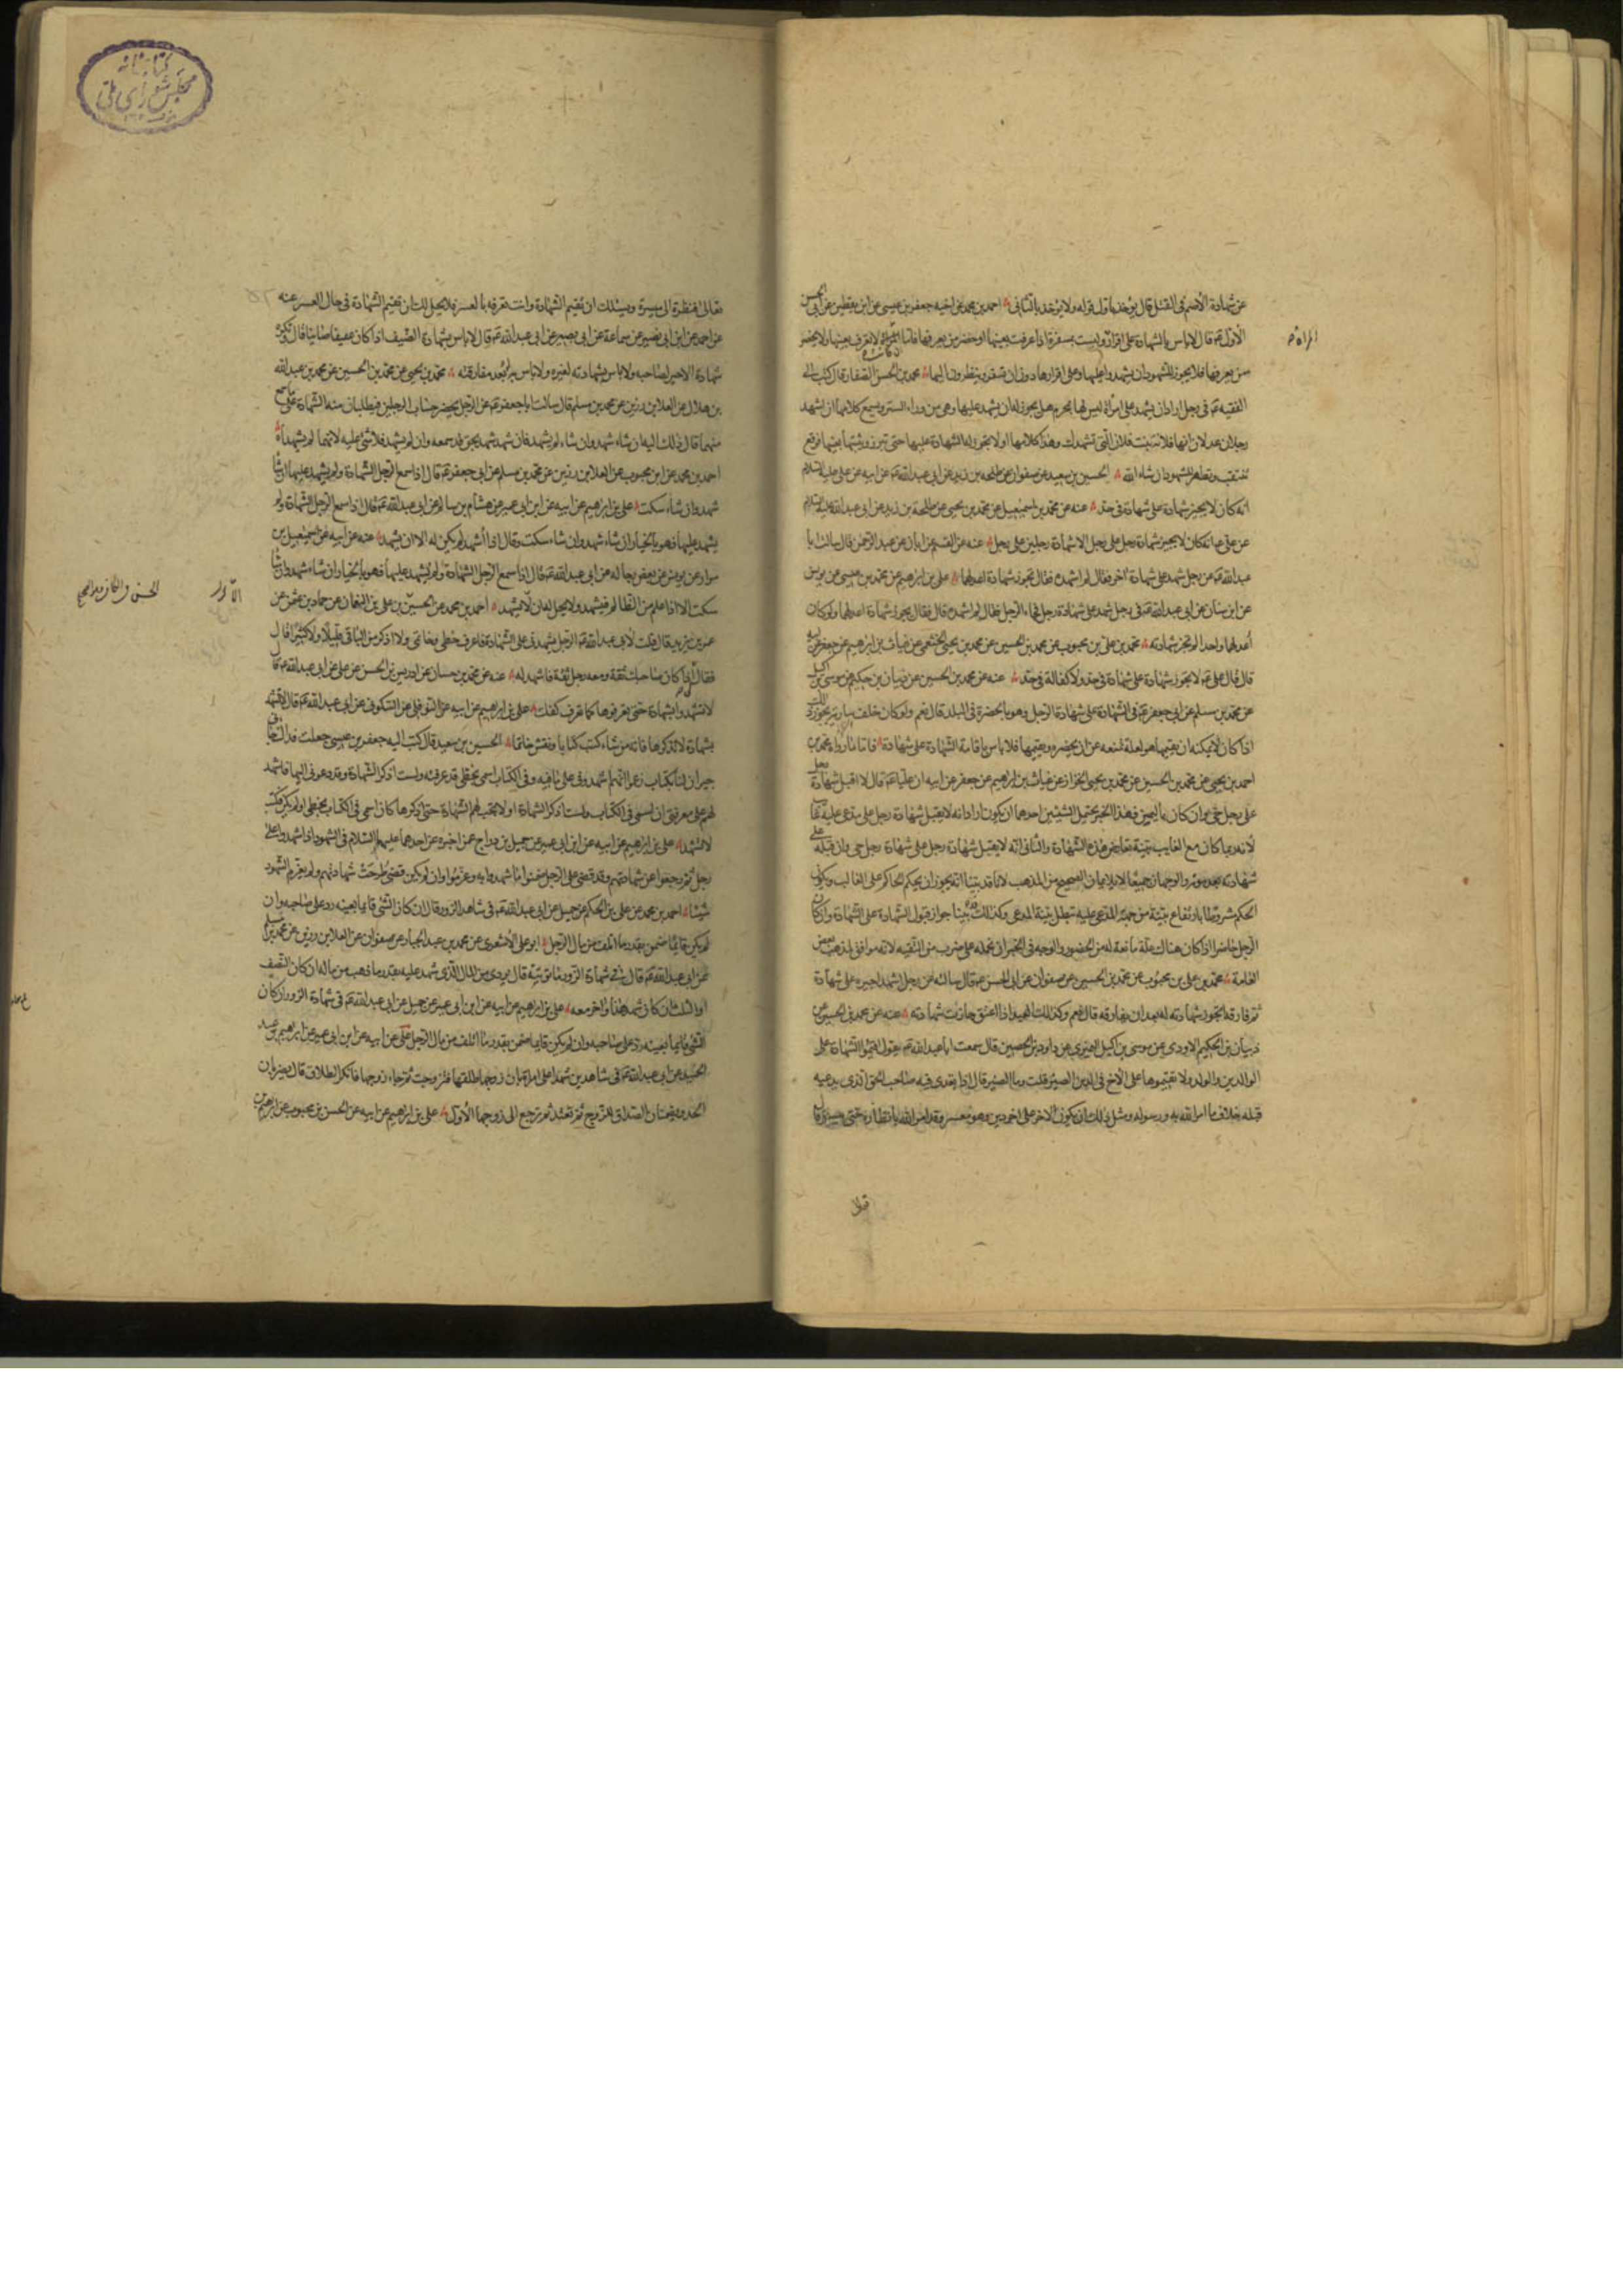 عن شهادة الأصم في القتل قال يؤخذ باول قوله ولا يؤخذ بالثاني احمد بن محمد عن اخيه جعفر بن عيسى عن ابن يقطين عن ابي الحسن
الأول عم قال لا باس بالشهادة على اقرار المرأة وليست بمسفرة اذا عرفت بعينها او حضر من يعرفها فاما ان لا تعرف بعينها ولا يحضر
من يعرفها فلا يجوز للشهود ان يشهدوا عليها وعلى اقرارها دون ان تسفر وينظرون اليها محمد بن الحسن الصفار قال كتبت الى
الفقيه عم في رجل اراد ان يشهد على امرأة ليس لها بمحرم هل يجوز له ان يشهد عليها وهي من وراء الستر ويسمع كلامها اذا شهد
رجلان عدلان انها فلانة بنت فلان التي تشهدك وهذا كلامها او لا يجوز له الشهادة عليها حتى تبرز ويثبتها بعينها فوقع
تتنقب وتظهر للشهود ان شاء الله الحسين بن سعيد عن صفوان عن طلحة بن زيد عن ابي عبد الله عم عن ابيه عن علي عليه السلام
انه كان لا يجيز شهادة على شهادة في حد عنه عن محمد بن اسمعيل عن محمد بن يحيى عن طلحة بن زيد عن ابي عبد الله عليه السلام
عن علي عم انه كان لا يجيز شهادة رجل على رجل الا شهادة رجلين على رجل عنه عن القسم عن ابان عن عبد الرحمن قال سالت ابا
عبد الله عم عن رجل شهد على شهادة اخر فقال لم اشهده فقال تجوز شهادة اعدلهما علي بن ابراهيم عن محمد بن عيسى عن يونس
عن ابن سنان عن ابي عبد الله عم في رجل شهد على شهادة رجل فجاء الرجل فقال لم اشهده قال فقال يجوز شهادة اعدلهما ولو كان
اعدلهما واحدا لم تجز شهادته محمد بن علي بن محبوب عن محمد بن الحسين عن محمد بن يحيى الخثعمي عن غياث بن ابراهيم عن جعفر عن ابيه
قال قال علي عم لا تجوز شهادة على شهادة في حد ولا كفالة في حد عنه عن محمد بن الحسين عن ذبيان بن حكيم عن موسى بن اكيل
عن محمد بن مسلم عن ابي جعفر عم في الشهادة على شهادة الرجل وهو بالحضرة في البلد قال نعم ولو كان خلف سارية يجوز ذلك
اذا كان لا يمكنه ان يقيمها هو لعلة تمنعه عن ان يحضره ويقيمها فلا باس باقامة الشهادة على شهادة فاما ما رواه محمد بن
احمد بن يحيى عن محمد بن الحسين عن محمد بن يحيى الخزاز عن غياث بن ابراهيم عن جعفر عن ابيه ان عليا عم قال لا اقبل شهادة رجل
على رجل حي وان كان باليمن فهذا الخبر يحتمل الشيئين احدهما ان يكون اراد انه لا يقبل شهادة رجل على مدعى عليه غايب
لانه ربما كان مع الغايب بينة تعارض هذه الشهادة والثاني انه لا يقبل شهادة رجل على شهادة رجل حي وان قبله على
شهادته بعد موته والوجهان جميعا لا يلايمان الصحيح من المذهب لانا قد بينا انه يجوز ان يحكم الحاكم على الغائب ويكون
الحكم مشروطا بارتفاع بينة من جهة المدعى عليه تبطل بينة المدعي وكذلك قد بينا جواز قبول الشهادة على الشهادة وان كان
الرجل حاضرا اذا كان هناك علة مانعة له من الحضور والوجه في الخبر ان نحمله على ضرب من التقية لانه موافق لمذهب بعض
العامة محمد بن علي بن محبوب عن محمد بن الحسين عن صفوان عن ابي الحسن عم قال سالته عن رجل اشهد اجيره على شهادة
ثم فارقه اتجوز شهادته له بعد ان يفارقه قال نعم وكذلك العبد اذا اعتق جازت شهادته عنه عن محمد بن الحسين عن
ذبيان بن الحكيم الاودي عن موسى بن اكيل النميري عن داود بن الحصين قال سمعت ابا عبد الله عم يقول اقيموا الشهادة على
الوالدين والولد ولا تقيموها على الاخ في الدين الصير قلت وما الصير قال اذا تعدى فيه صاحب الحق الذي يدعيه
قبله خلاف ما امر الله به ورسوله ومثل ذلك ان يكون لاخر على اخر دين وهو معسر وقد امر الله بانظاره حتى ييسر قال
المرأة
كتابخانه
مجلس شورای ملی
تعالى فنظرة الى ميسرة ويسئلك ان تقيم الشهادة وانت تعرفه بالعسر فلا يحل لك ان تقيم الشهادة في حال العسر عنه
عن احمد عن ابن ابي نصير عن سماعة عن ابي بصير عن ابي عبد الله عم قال لا باس بشهادة الضيف اذا كان عفيفا صاينا قال وتكره
شهادة الاجير لصاحبه ولا باس بشهادته لغيره ولا باس به له بعد مفارقته محمد بن يحيى عن محمد بن الحسين عن محمد بن عبد الله
بن هلال عن العلا بن رزين عن محمد بن مسلم قال سالت ابا جعفر عم عن الرجل يحضر حساب الرجلين فيطلبان منه الشهادة على ما سمع
منهما قال ذلك اليه ان شاء شهد وان شاء لم يشهد فان شهد شهد بحق قد سمعه وان لم يشهد فلا شئ عليه لانهما لم يشهداه
احمد بن محمد عن ابن محبوب عن العلا بن رزين عن محمد بن مسلم عن ابي جعفر عم قال اذا سمع الرجل الشهادة ولم يشهد عليها ان شاء
شهد وان شاء سكت علي بن ابراهيم عن ابيه عن ابن ابي عمير عن هشام بن سالم عن ابي عبد الله عم قال اذا سمع الرجل الشهادة ولم
يشهد عليها فهو بالخيار ان شاء شهد وان شاء سكت وقال اذا اشهد لم يكن له الا ان يشهد عنه عن ابيه عن اسمعيل بن
مرار عن يونس عن بعض رجاله عن ابي عبد الله عم قال اذا سمع الرجل الشهادة ولم يشهد عليها فهو بالخيار ان شاء شهد وان شاء
سكت الا اذا علم من الظالم فيشهد ولا يحل له ان لا يشهد احمد بن محمد عن الحسين بن علي بن النعمان عن حماد بن عثمن عن
عمر بن يزيد قال قلت لابي عبد الله عم الرجل يشهدني على الشهادة فاعرف خطي وخاتمي ولا اذكر من الباقي قليلا ولا كثيرا قال
فقال لي اذا كان صاحبك ثقة ومعه رجل ثقة فاشهد له عنه عن محمد بن حسان عن ادريس بن الحسن عن علي عن ابي عبد الله عم قال
لا تشهدوا بشهادة حتى تعرفوها كما تعرف كفك علي بن ابراهيم عن ابيه عن النوفلي عن السكوني عن ابي عبد الله عم قال لا تشهد
بشهادة لا تذكرها فانه من شاء كتب كتابا ونقش خاتما الحسين بن سعيد قال كتب اليه جعفر بن عيسى جعلت فداك جاءني
جيران لنا بكتاب زعموا انهم اشهدوني على ما فيه وفي الكتاب اسمي بخطي قد عرفته ولست اذكر الشهادة وقد دعوني اليها فاشهد
لهم على معرفتي ان اسمي في الكتاب ولست اذكر الشهادة او لا تجب لهم الشهادة حتى اذكرها كان اسمي في الكتاب بخطي او لم يكن فكتب
لا تشهد علي بن ابراهيم عن ابيه عن ابن ابي عمير عن جميل بن دراج عمن اخبره عن احدهما عليهما السلام في الشهود اذا شهدوا على
رجل ثم رجعوا عن شهادتهم وقد قضي على الرجل ضمنوا ما شهدوا به وغرموا وان لم يكن قضي طرحت شهادتهم ولم يغرم الشهود
شيئا احمد بن محمد عن علي بن الحكم عن جميل عن ابي عبد الله عم في شاهد الزور قال ان كان الشئ قايما بعينه رد على صاحبه وان
لم يكن قايما ضمن بقدر ما اتلف من مال الرجل ابو علي الأشعري عن محمد بن عبد الجبار عن صفوان عن العلا بن رزين عن محمد بن مسلم
عن ابي عبد الله عم قال في شهادة الزور ما توبته قال يؤدي من المال الذي شهد عليه بقدر ما ذهب من ماله ان كان النصف
او الثلث ان كان شهد هذا واخر معه علي بن ابراهيم عن ابيه عن ابن ابي عمير عن جميل عن ابي عبد الله عم في شهادة الزور ان كان
الشئ قايما بعينه رد على صاحبه وان لم يكن قايما ضمن بقدر ما اتلف من مال الرجل علي عن ابيه عن ابن ابي عمير عن ابراهيم بن عبد
الحميد عن ابي عبد الله عم في شاهدين شهدا على امرأة بان زوجها طلقها فتزوجت ثم جاء زوجها فانكر الطلاق قال يضربان
الحد ويضمنان الصداق للزوج ثم تعتد ثم ترجع الى زوجها الأول علي بن ابراهيم عن ابيه عن الحسن بن محبوب عن ابراهيم